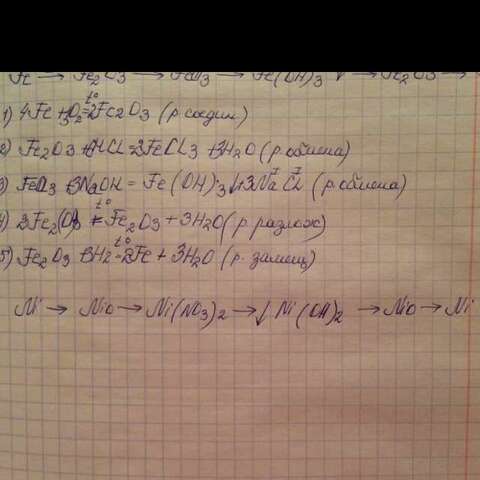 Fe → Fe2O3 → FeCl3 → Fe(OH)3 ↓ → Fe2O3 →
1) 4Fe + 3O2 t°= 2Fe2O3 (р. соедин)
2) Fe2O3 + 6HCl = 2FeCl3 + 3H2O (р. обмена)
3) FeCl3 + 3NaOH = Fe(OH)3↓ + 3NaCl (р. обмена)
4) 2Fe(OH)3 t°= Fe2O3 + 3H2O (р. разлож)
5) Fe2O3 + 3H2 t°= 2Fe + 3H2O (р. замещ)
Ni → NiO → Ni(NO3)2 → ↓ Ni(OH)2 → NiO → Ni